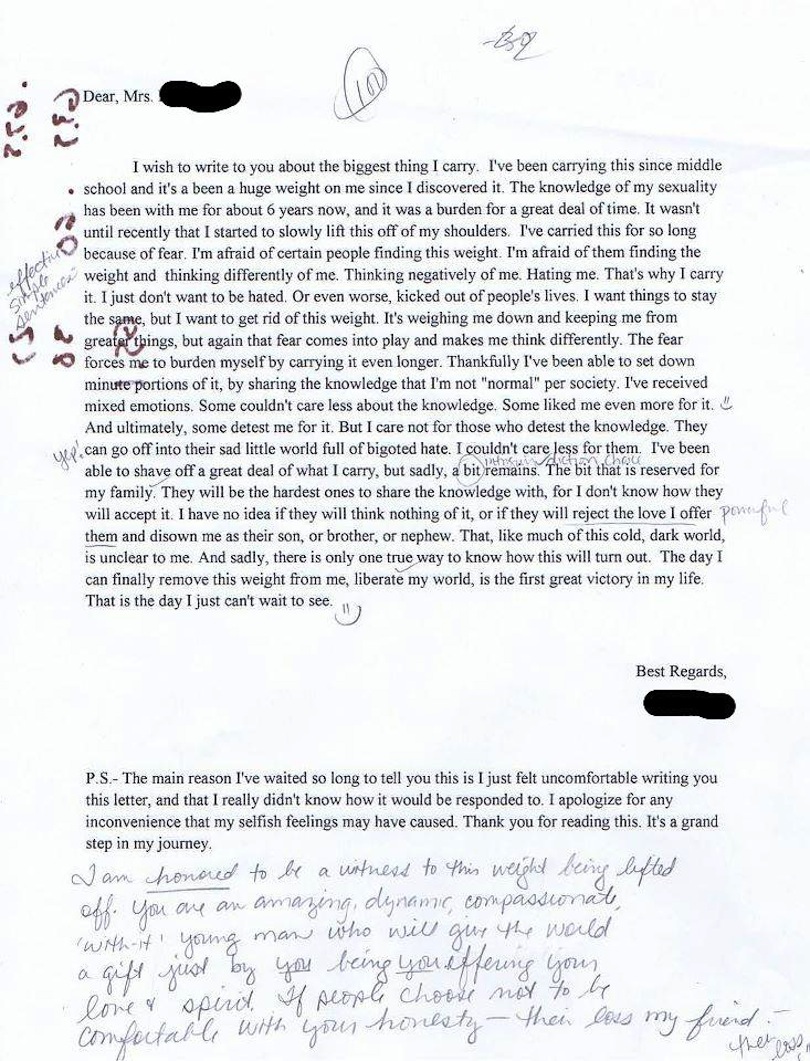 100
Dear, Mrs.
I wish to write to you about the biggest thing I carry.  I've been carrying this since middle
school and it's a been a huge weight on me since I discovered it. The knowledge of my sexuality
has been with me for about 6 years now, and it was a burden for a great deal of time. It wasn't
until recently that I started to slowly lift this off of my shoulders.  I've carried this for so long
because of fear. I'm afraid of certain people finding this weight. I'm afraid of them finding the
weight and  thinking differently of me. Thinking negatively of me. Hating me. That's why I carry
effective
simple
sentences
it. I just don't want to be hated. Or even worse, kicked out of people's lives. I want things to stay
the same, but I want to get rid of this weight. It's weighing me down and keeping me from
greater things, but again that fear comes into play and makes me think differently. The fear
forces me to burden myself by carrying it even longer. Thankfully I've been able to set down
minute portions of it, by sharing the knowledge that I'm not "normal" per society. I've received
mixed emotions. Some couldn't care less about the knowledge. Some liked me even more for it.
And ultimately, some detest me for it. But I care not for those who detest the knowledge. They
yep! can go off into their sad little world full of bigoted hate. I couldn't care less for them.  I've been
diction choice
able to shave off a great deal of what I carry, but sadly, a bit remains. The bit that is reserved for
my family. They will be the hardest ones to share the knowledge with, for I don't know how they
will accept it. I have no idea if they will think nothing of it, or if they will reject the love I offer powerful
them and disown me as their son, or brother, or nephew. That, like much of this cold, dark world,
is unclear to me. And sadly, there is only one true way to know how this will turn out.  The day I
can finally remove this weight from me, liberate my world, is the first great victory in my life.
That is the day I just can't wait to see.
Best Regards,
P.S.- The main reason I've waited so long to tell you this is I just felt uncomfortable writing you
this letter, and that I really didn't know how it would be responded to. I apologize for any
inconvenience that my selfish feelings may have caused. Thank you for reading this. It's a grand
step in my journey.
I am honored to be a witness to this weight being lifted
off. You are an amazing, dynamic, compassionate,
'with-it' young man who will give the world
a gift just by you being you offering your
love & spirit. If people choose not to be
comfortable with your honesty – their loss my friend –
their loss